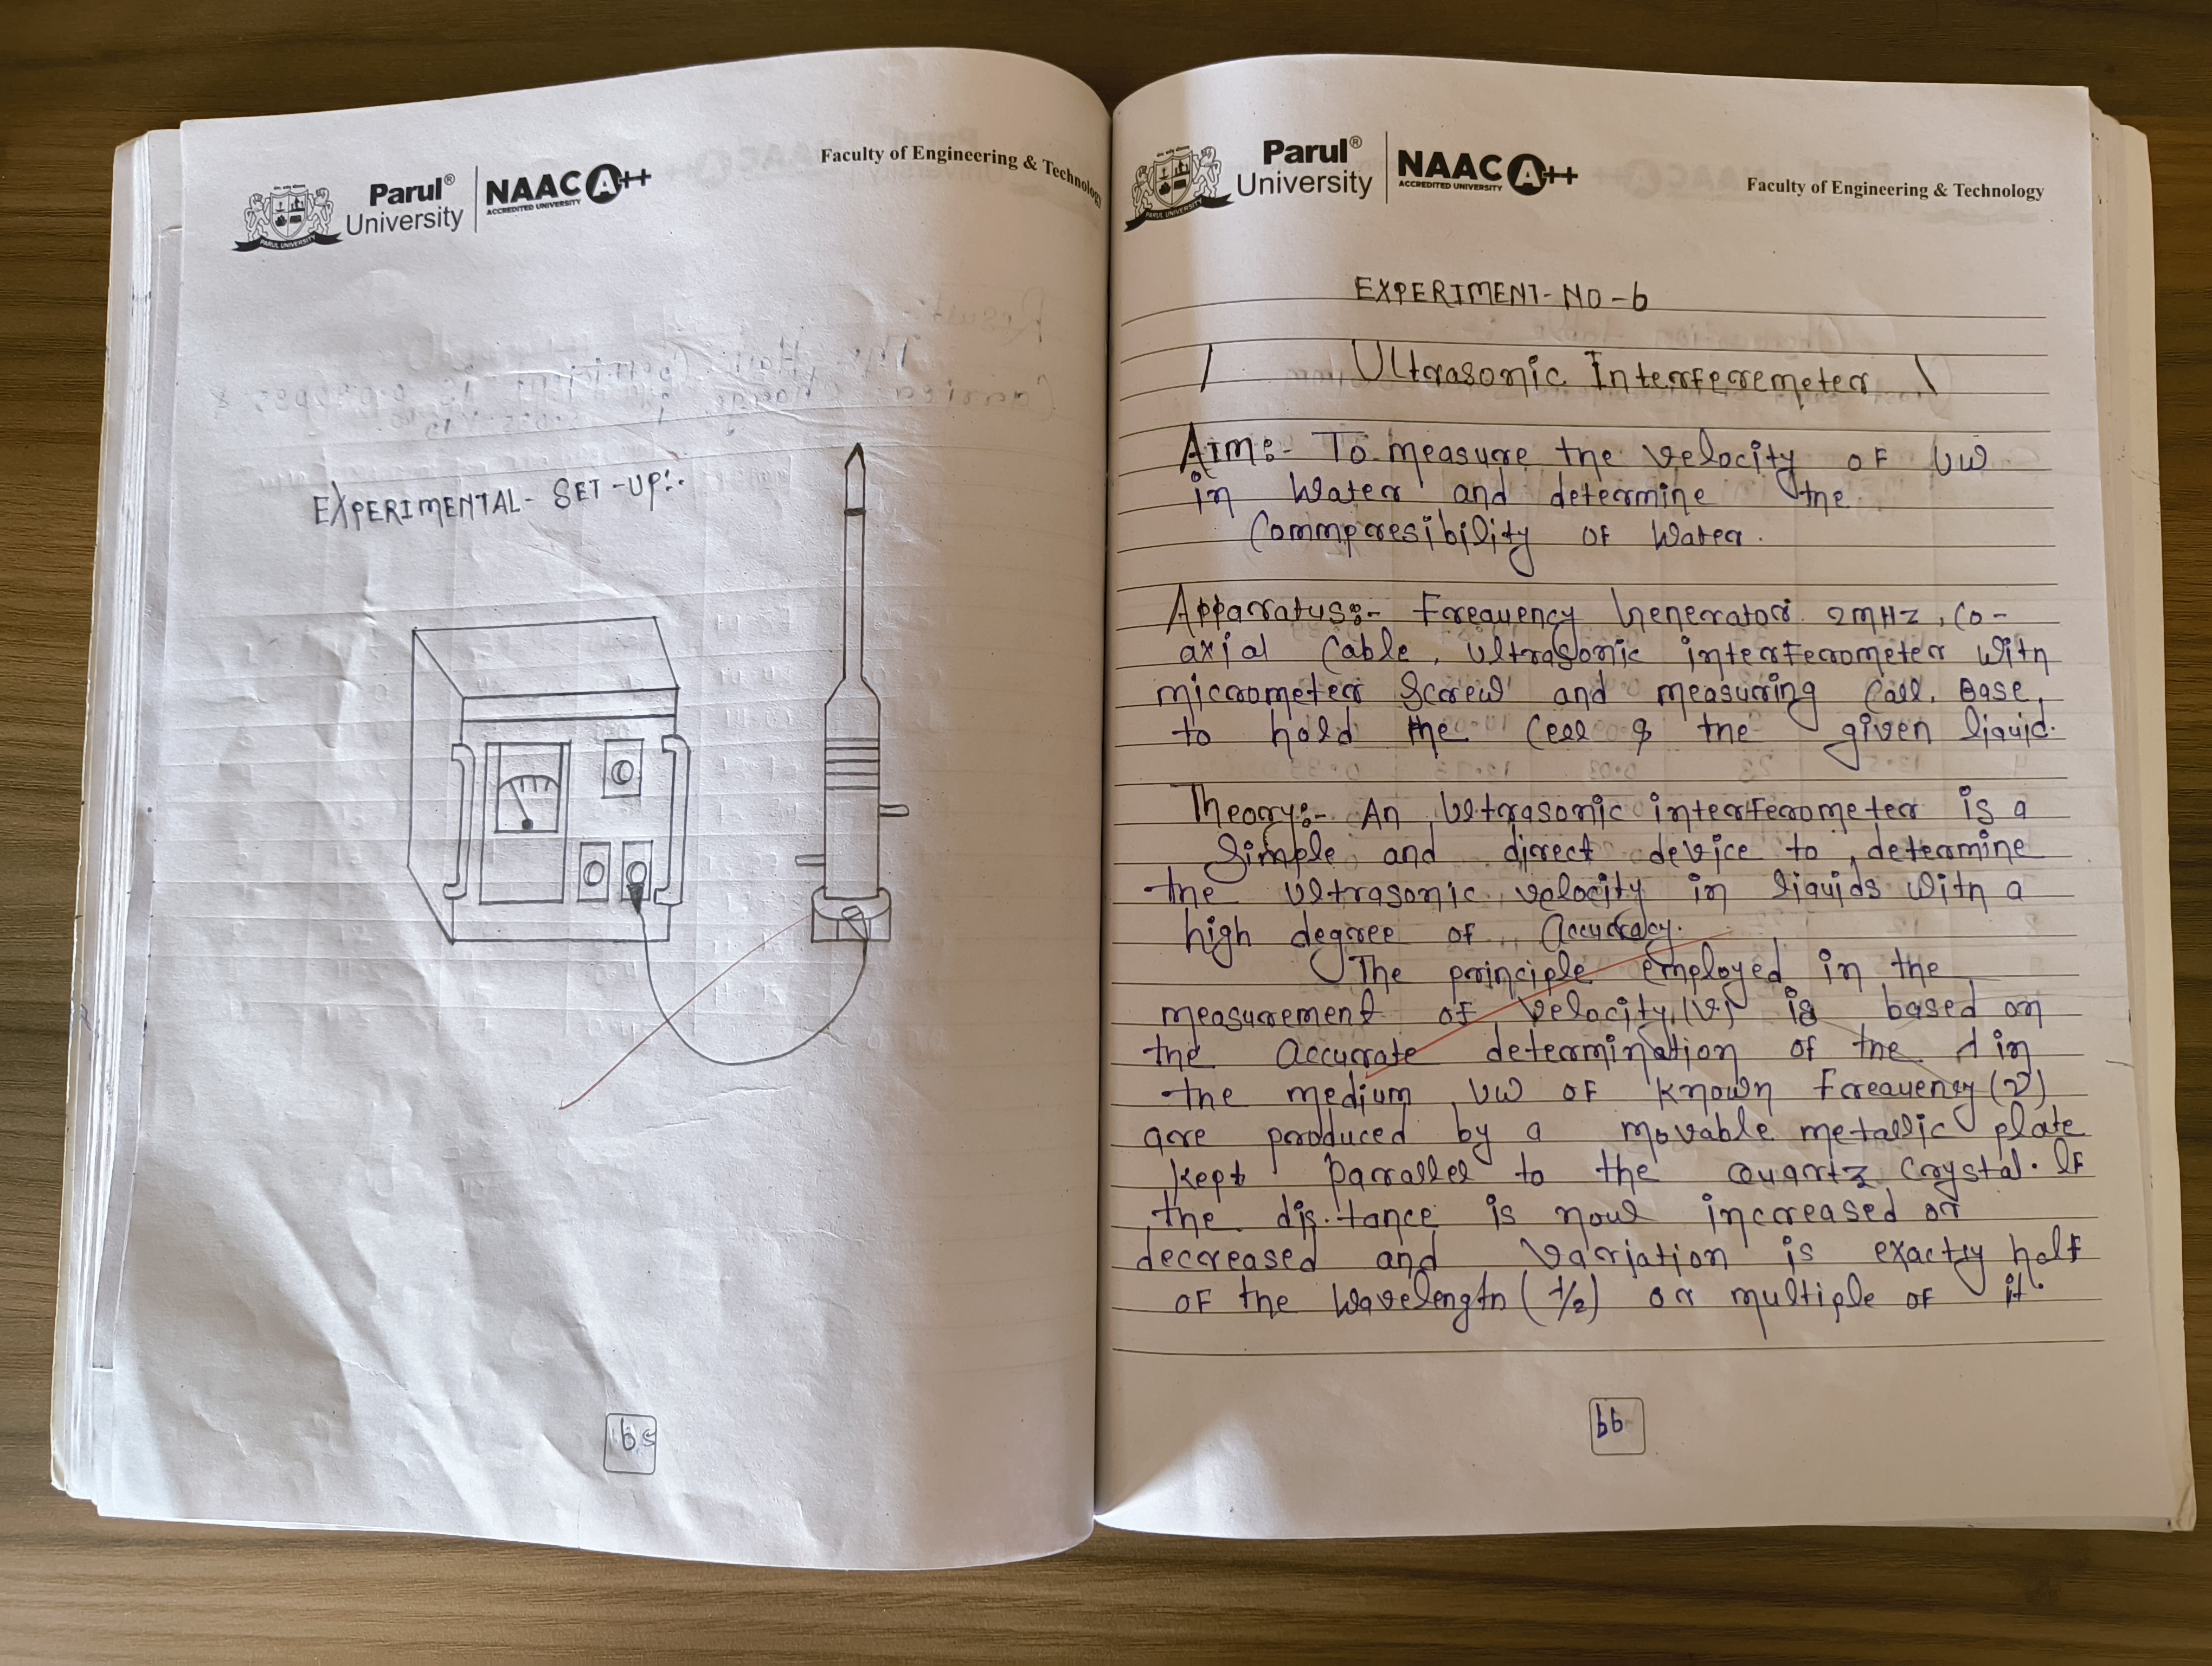 Parul®
University
NAAC A++
ACCREDITED UNIVERSITY
PARUL UNIVERSITY
Faculty of Engineering & Technology
EXPERIMENTAL- SET-UP:-
65
Parul®
University
NAAC A++
ACCREDITED UNIVERSITY
PARUL UNIVERSITY
Faculty of Engineering & Technology
EXPERIMENT-NO-6
Ultrasonic Interferemeter
Aim:- To measure the velocity of UW
in Water and determine the
Commpresibility of Water.
Apparatus:- Frequency Generator 2MHz, Co-
axial Cable, Ultrasonic interferometer with
micrometer Screw and measuring Call, Base,
to hold the Cell & the given liquid.
Theory:- An Ultrasonic interferometer is a
Simple and direct device to determine
the Ultrasonic velocity in liquids with a
high degree of Accuracy.
The principle employed in the
measurement of velocity (v) is based on
the Accurate determination of the λ in
the medium UW of known Frequency (ν)
are produced by a movable metallic plate
kept Parallel to the Quartz Crystal. If
the dis.tance is now increased or
decreased and Variation is exactly half
of the Wavelength (λ/2) or multiple of it.
66